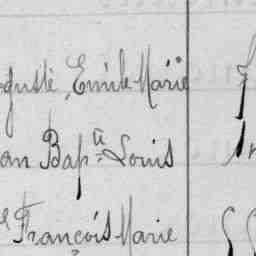 guste, Emile Marie
an Bapte Louis
el François Marie